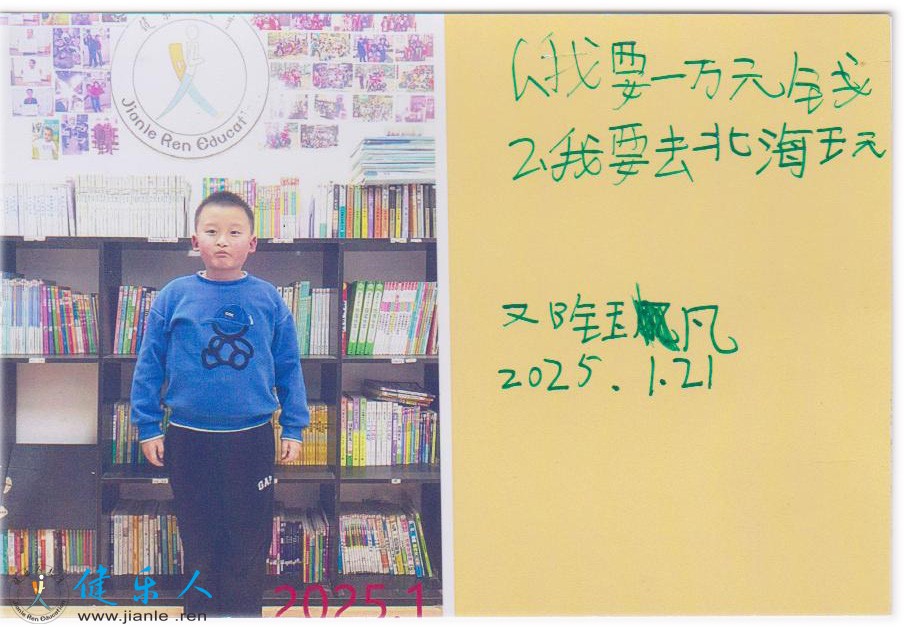 健乐
Jianle Ren Educati
1、我要一万元钱
2、我要去北海玩
凡
2025.1.21
GAP
2025.1
健乐人
www.jianle.ren
Jianle Ren Education